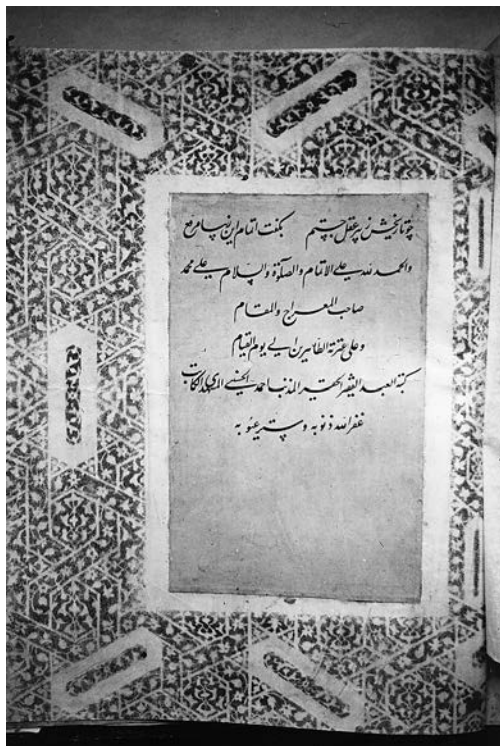 چو تاریخش ز پیر عقل جستم بگفت اتمام این
والحمد لله علی الاتمام والصلوة والسلام علی محمد
صاحب المعراج والمقام
وعلی عترة الطاهرین الی یوم القیام
کتبه العبد الفقیر الحقیر المذنب احمد الحسینی المشهدی الکاتب
غفر الله ذنوبه وستر عیوبه